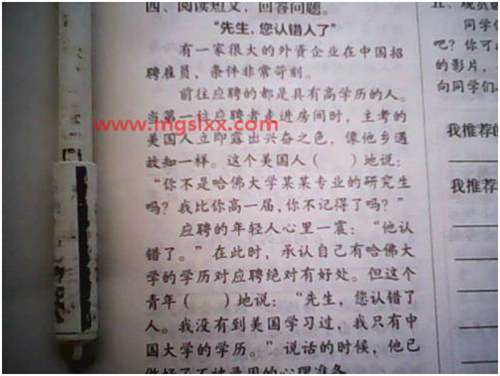 四、阅读短文，回答问题。
“先生，您认错人了”
有一家很大的外资企业在中国招
聘雇员，条件非常苛刻。
前往应聘的都是具有高学历的人。
当第一位应聘者走进房间时，主考的
www.mgslxx.com
美国人立即露出兴奋之色，像他乡遇
故知一样。这个美国人（　　）地说：
“你不是哈佛大学某某专业的研究生
吗？我比你高一届，你不记得了吗？”
应聘的年轻人心里一震：“他认
错了。”在此时，承认自己有哈佛大
学的学历对应聘绝对有好处。但这个
青年（　　）地说：“先生，您认错了
人。我没有到美国学习过，我只有中
国大学的学历。”说话的时候，他已
做好了不被录用的心理准备
同学们
吧？你可
的影片，
向同学们
我推荐的
我推荐